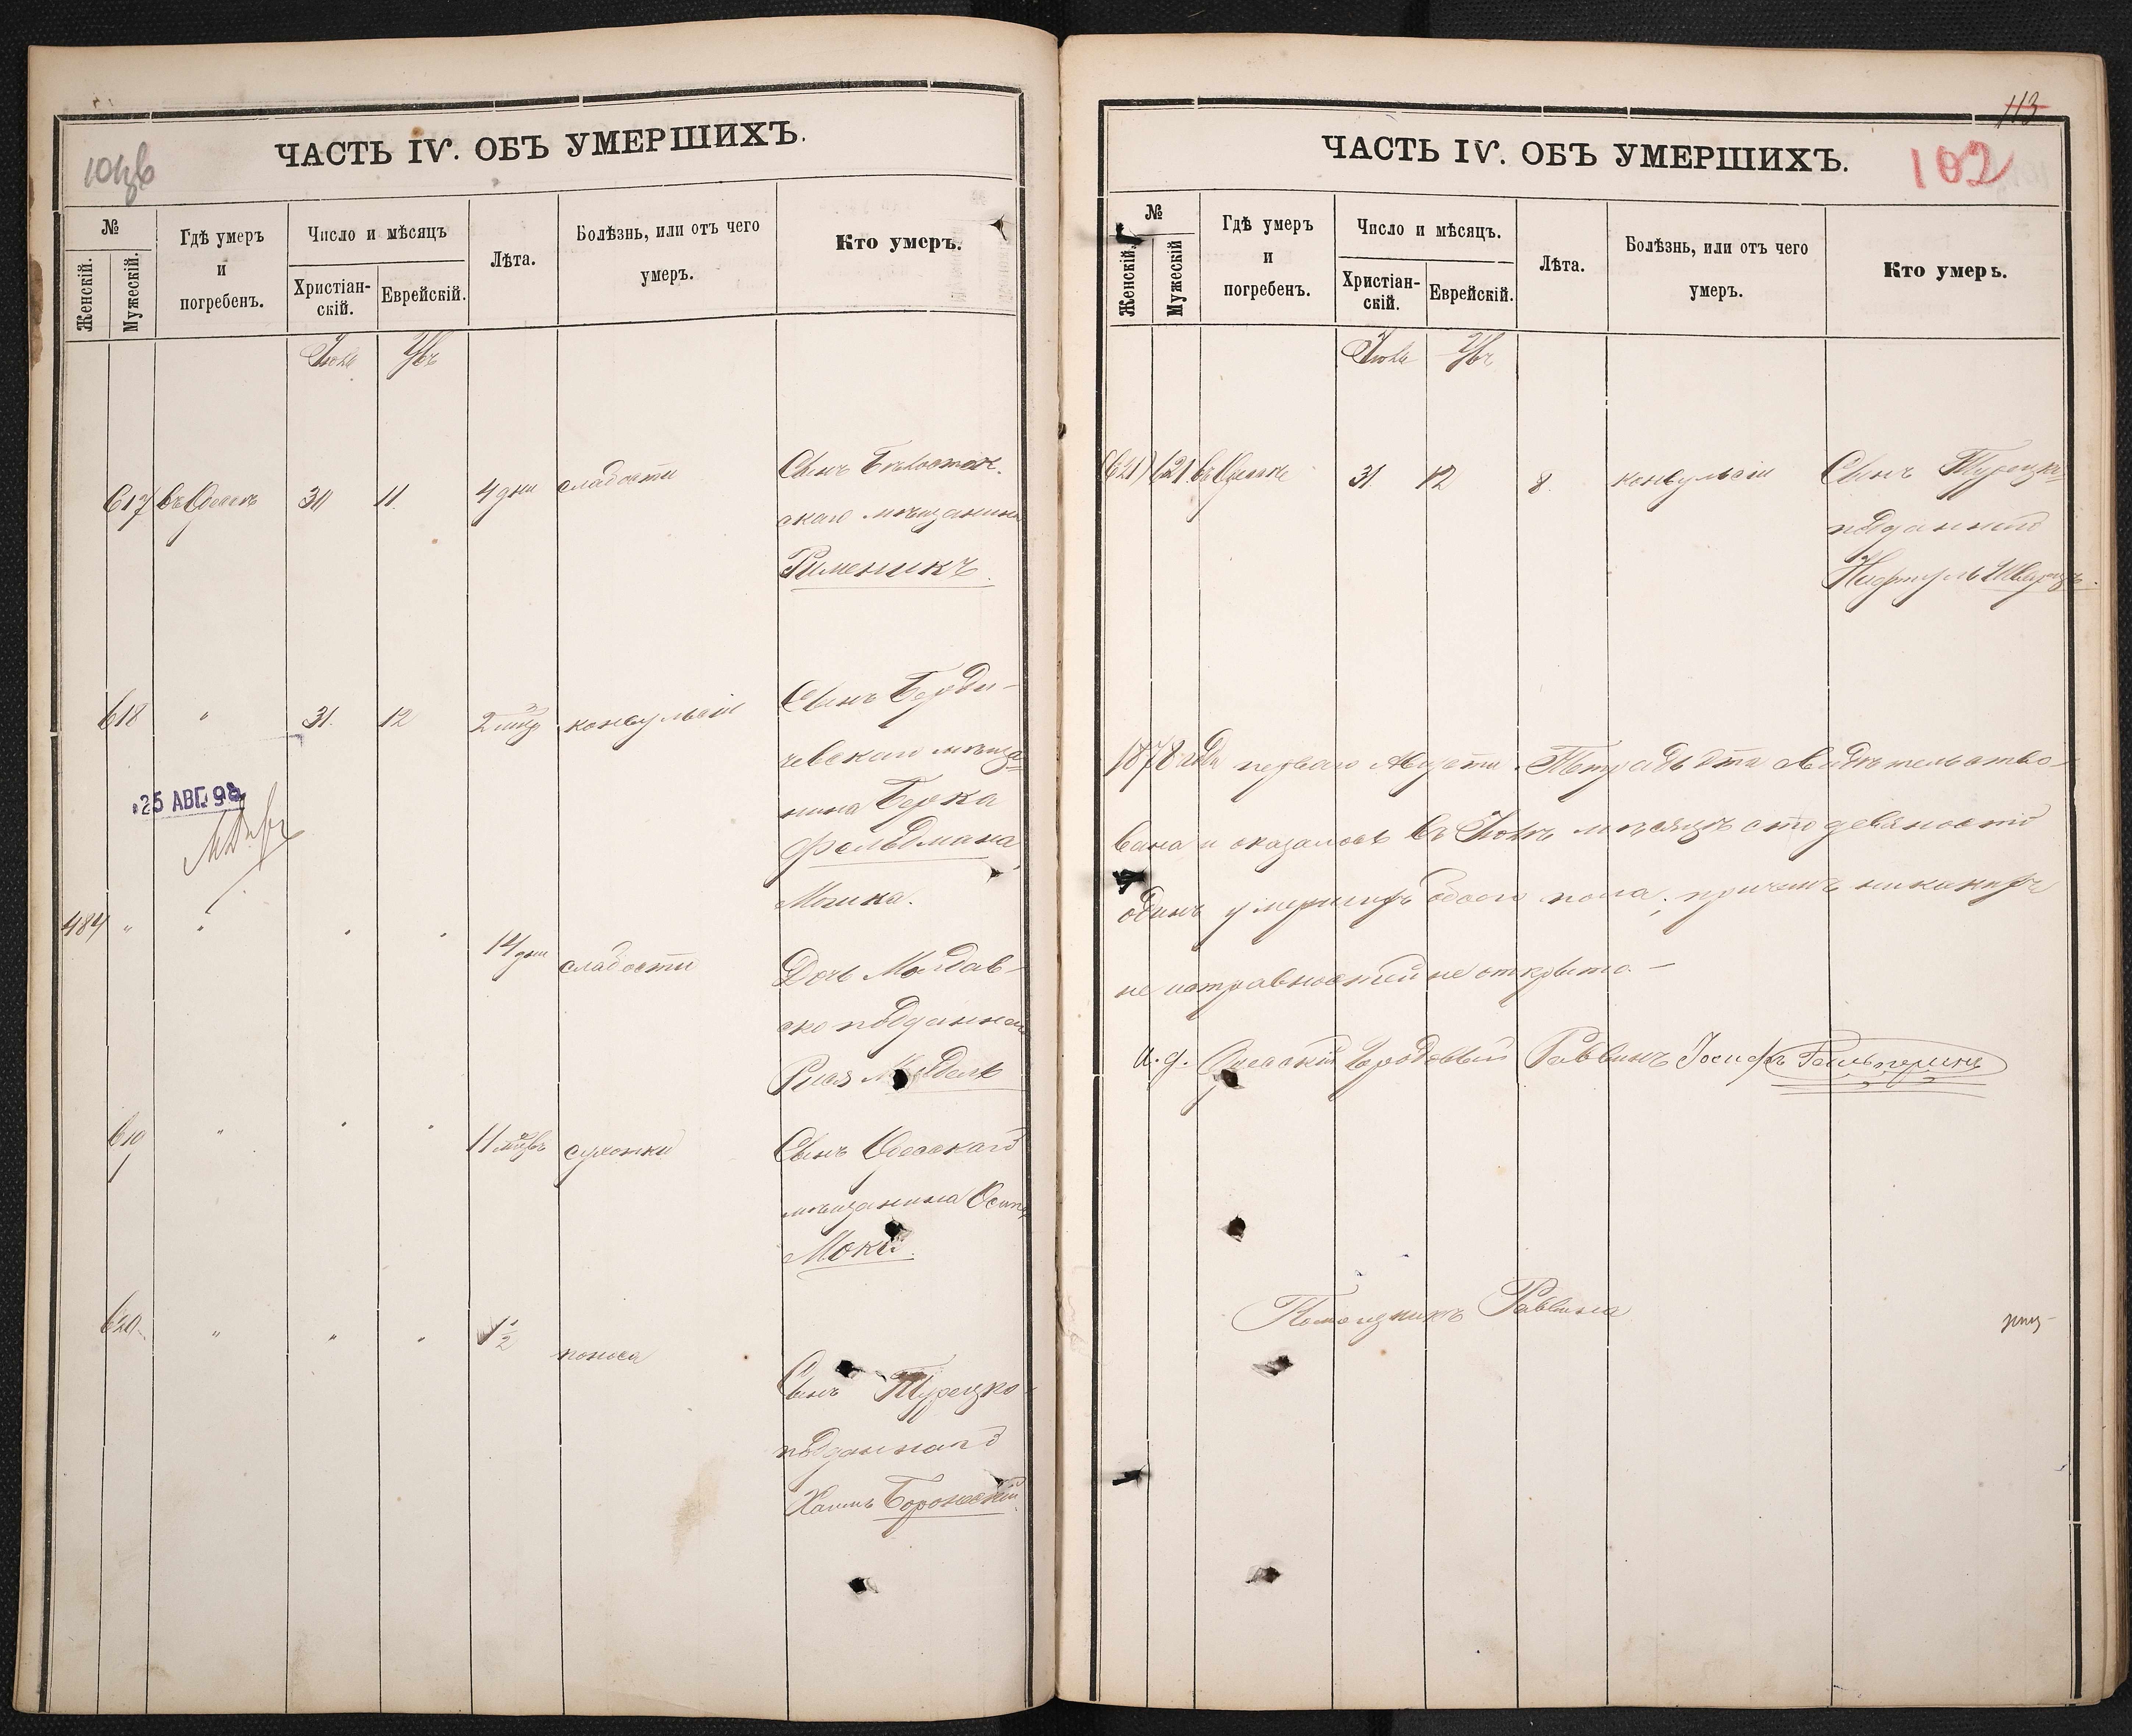 ЧАСТЬ IV. ОБЪ УМЕРШИХЪ.
№
Женскій.
Мужескій.
Гдѣ умеръ
и
погребенъ.
Число и мѣсяцъ
Христіан-
скій.
Еврейскій.
Лѣта.
Болѣзнь, или отъ чего
умеръ.
Кто умеръ.
Іюль
617 въ Одессѣ 30 11. 4 дни слабости
Сынъ Бѣлосток.
скаго мѣщанина
Рименикъ
618 " 31. 12 2 мѣс конвульсіи
Сынъ Берди-
чевскаго мѣща=
нина Берка
Фельдмана
Мошка.
25 АВГ. 98
484 " " " " 14 дни слабости
Дочь Молдав-
ско подданнаго
619 " " " 11 мѣсвъ сухотки
Сынъ Одесскаго
мѣщанина Осипъ
620 " " " 1 1/2 поноса
Сынъ Турецко-
подданнаго
Хаимъ Боронскій
ЧАСТЬ IV. ОБЪ УМЕРШИХЪ.
113
102
№
Женскій.
Мужескій
Гдѣ умеръ
и
погребенъ.
Число и мѣсяцъ.
Христіан-
скій.
Еврейскій.
Лѣта.
Болѣзнь, или отъ чего
умеръ.
Кто умеръ.
Іюль
(621) 621 въ Одессѣ 31. 12 8. конвульсіи
Сынъ Турецко=
подданнаго
Нафтулъ Шварцъ.
1878 года перваго Августа. Тетрадь эта свидѣтельство-
вана и оказалось въ Іюлѣ мѣсяцѣ сто девяносто
одинъ умершихъ обоего пола; причемъ никакихъ
неисправностей не открыто.-
и. д. Одесскій Городовый Раввинъ Іосифъ Гальперинъ
Помощникъ Раввина